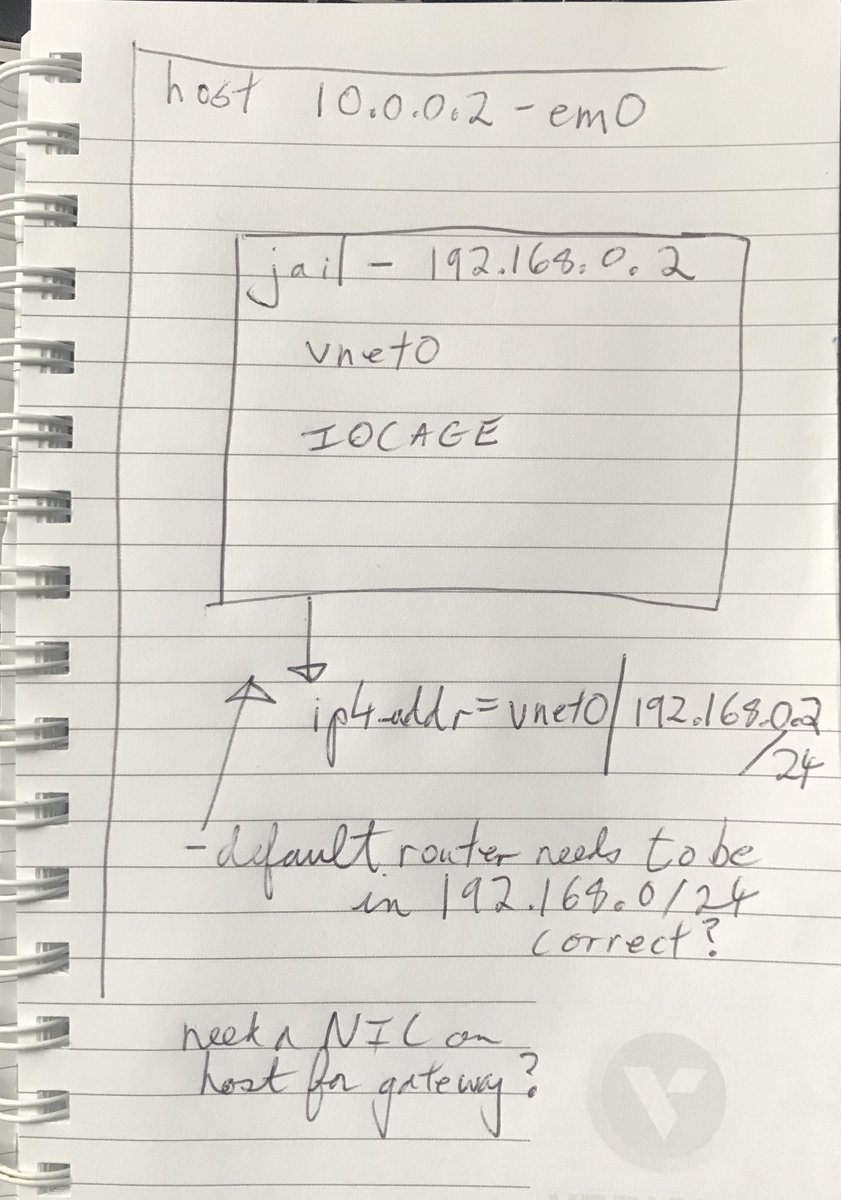 host 10.0.0.2 - em0
jail - 192.168.0.2
vnet0
IOCAGE
ip4_addr=vnet0|192.168.0.2
/24
- default router needs to be
in 192.168.0/24
correct?
need a NIC on
host for gateway?